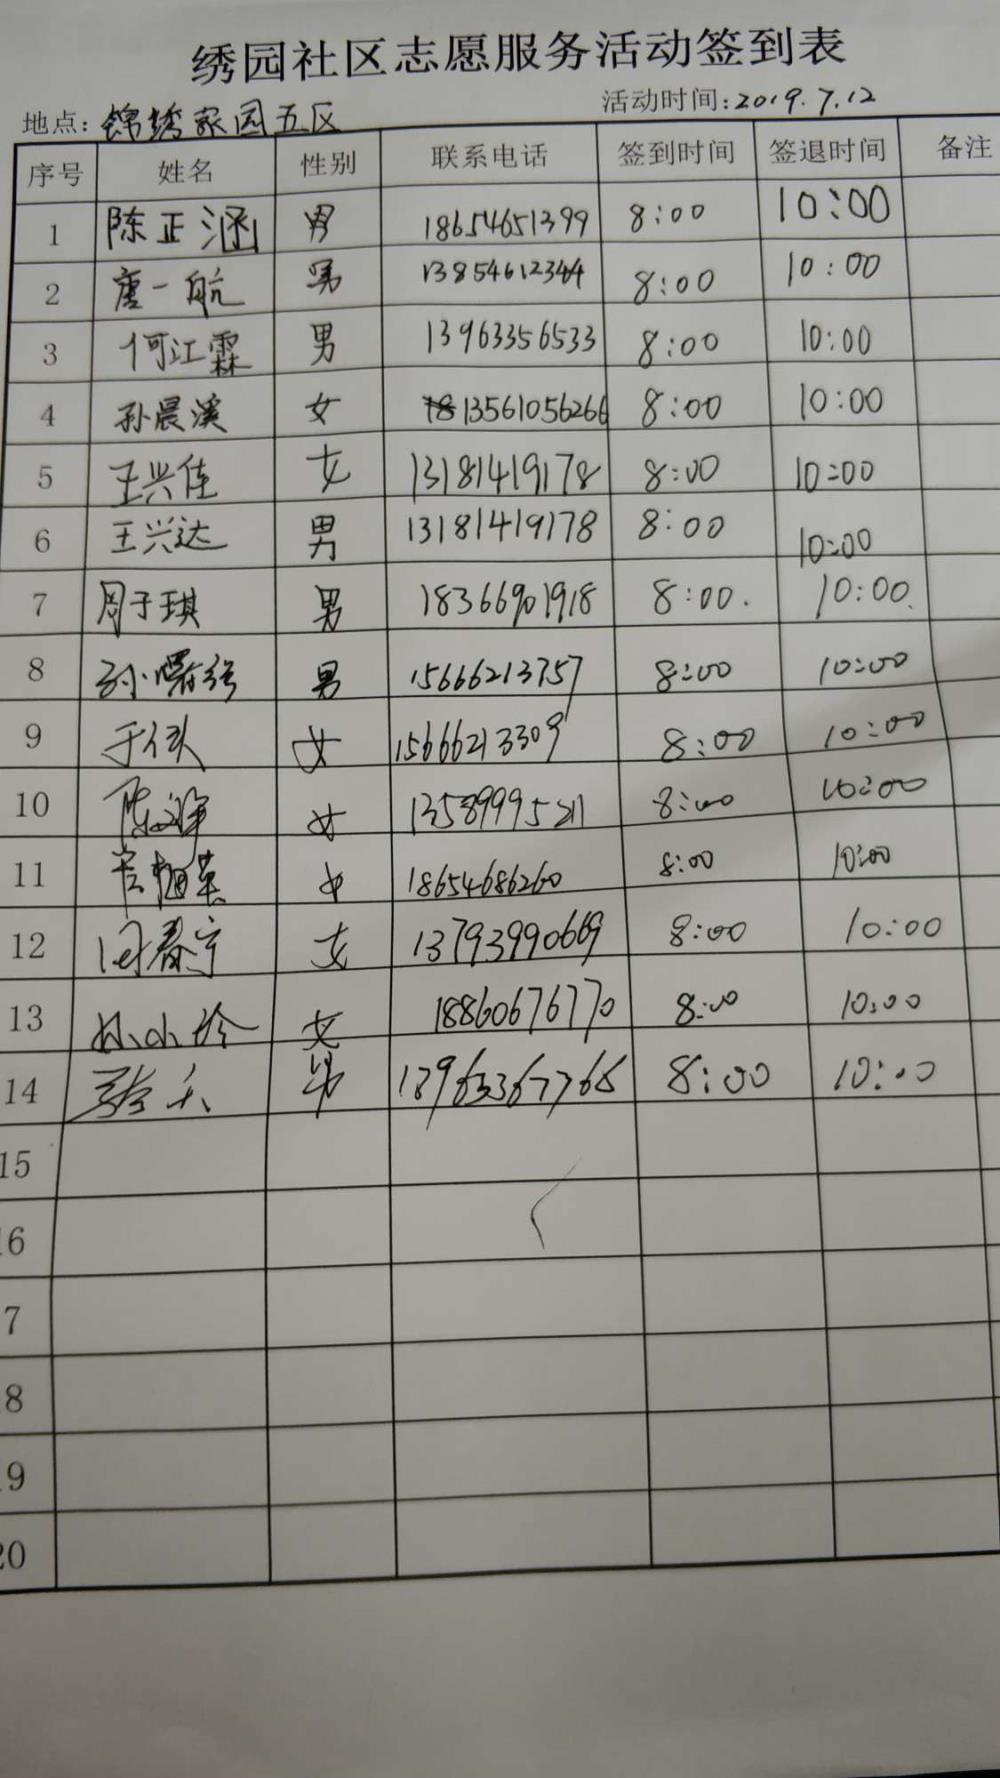 绣园社区志愿服务活动签到表
地点：锦绣家园五区 活动时间：2019.7.12
序号 姓名 性别 联系电话 签到时间 签退时间 备注
1 陈正涵 男 18654651399 8:00 10:00
2 唐一航 男 13854612344 8:00 10:00
3 何江霖 男 13963356533 8:00 10:00
4 孙晨溪 女 13561056266 8:00 10:00
5 王兴佳 女 13181419178 8:00 10:00
6 王兴达 男 13181419178 8:00 10:00
7 周于琪 男 18366901918 8:00. 10:00.
8 男 15666213757 8:00 10:00
9 女 15666213309 8:00 10:00
10 女 13589995211 8:00 10:00
11 女 18654686260 8:00 10:00
12 女 13793990669 8:00 10:00
13 女 18860676770 8:00 10:00
14 男 13963367768 8:00 10:00
15
16
7
8
9
20